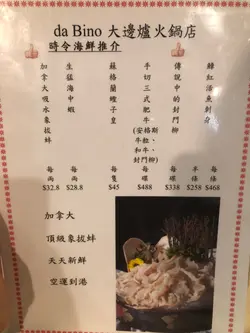 da Bino 大邊爐火鍋店
時令海鮮推介
紅活魚刺身
半條 $258
每條 $468
傳說中的封門柳
每碟 $338
手切三式肥牛
(安格斯
牛、
和牛、
封門柳)
每碟 $488
蘇格蘭蟶子皇
每隻 $45
生猛海中蝦
每兩 $28.8
加拿大吸水象拔蚌
每兩 $32.8
加拿大
頂級象拔蚌
天天新鮮
空運到港